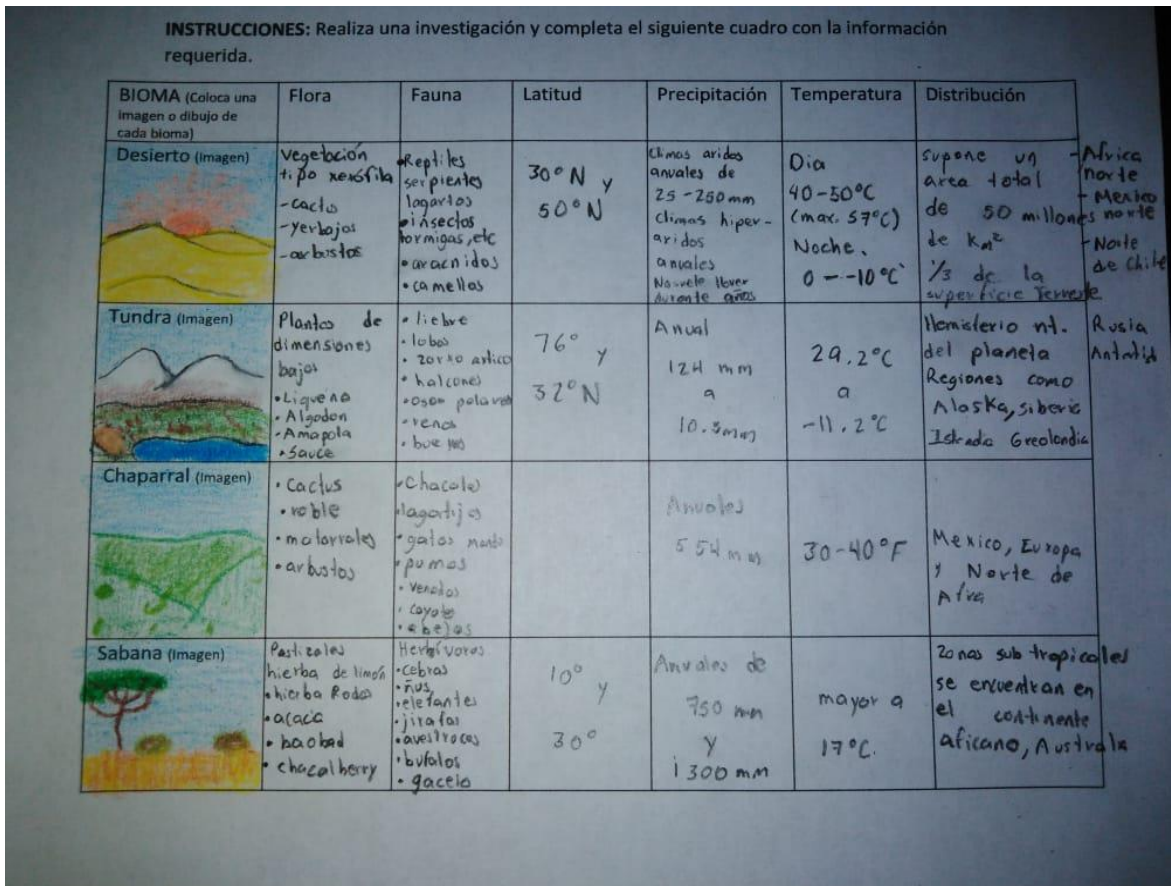 INSTRUCCIONES: Realiza una investigación y completa el siguiente cuadro con la información
requerida.
BIOMA (Coloca una
imagen o dibujo de
cada bioma)
Flora
Fauna
Latitud
Precipitación
Temperatura
Distribución
Desierto (Imagen)
Vegetación
tipo xerófila
-cacto
-yerbajos
-arbustos
•Reptiles
serpientes
lagartos
•insectos
hormigas, etc
•aracnidos
•camellos
30° N y
50° N
Climas aridos
anuales de
25-250 mm
Climas hiper-
aridos
anuales
No suele llover
durante años
Dia
40-50°C
(max. 57°C)
Noche.
0 - -10°C
supone un
area total
de 50 millones
de Km²
1/3 de la
superficie Terrestre
-Africa
norte
- Mexico
norte
-Norte
de Chile
Tundra (Imagen)
Plantas de
dimensiones
bajas
•Liquena
•Algodon
•Amapola
•Sauce
•liebre
•lobos
•zorro artico
•halcones
•osos polares
•renos
76° y
32°N
Anual
124 mm
a
10.5mm
29.2°C
a
-11.2°C
Hemisferio nt.
del planeta
Regiones como
Alaska, siberia
Greolandia
Rusia
Chaparral (Imagen)
•Cactus
•roble
•matorrales
•arbustos
•Chacales
lagartijas
•gatos
•pumas
•venados
•coyotes
•abejas
Anuales
554 mm
30-40°F
Mexico, Europa
y Norte de
Sabana (Imagen)
Pastizales
hierba de limón
•hierba Rodas
•acacia
•baobad
•chacalberry
Herbívoros
•cebras
•ñus,
•elefantes
•jirafas
•avestroces
•bufalos
•gacela
10° y
30°
Anuales de
750 mm
y
1300 mm
mayor a
17°C.
Zonas sub tropicales
se encuentran en
el continente
aficano, Australa